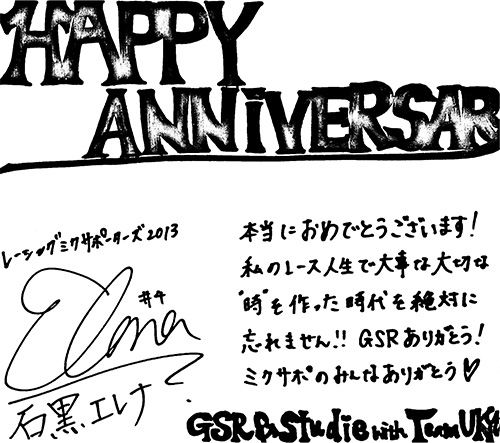 HAPPY
ANNIVERSAR
レーシングミクサポーターズ2013
#4
Elena
石黒エレナ
本当におめでとうございます!
私のレース人生で大事な大切な
"時"を作った時代を絶対に
忘れません!! GSRありがとう!
ミクサポのみんなありがとう♡
GSR & Studie with Team UKYO